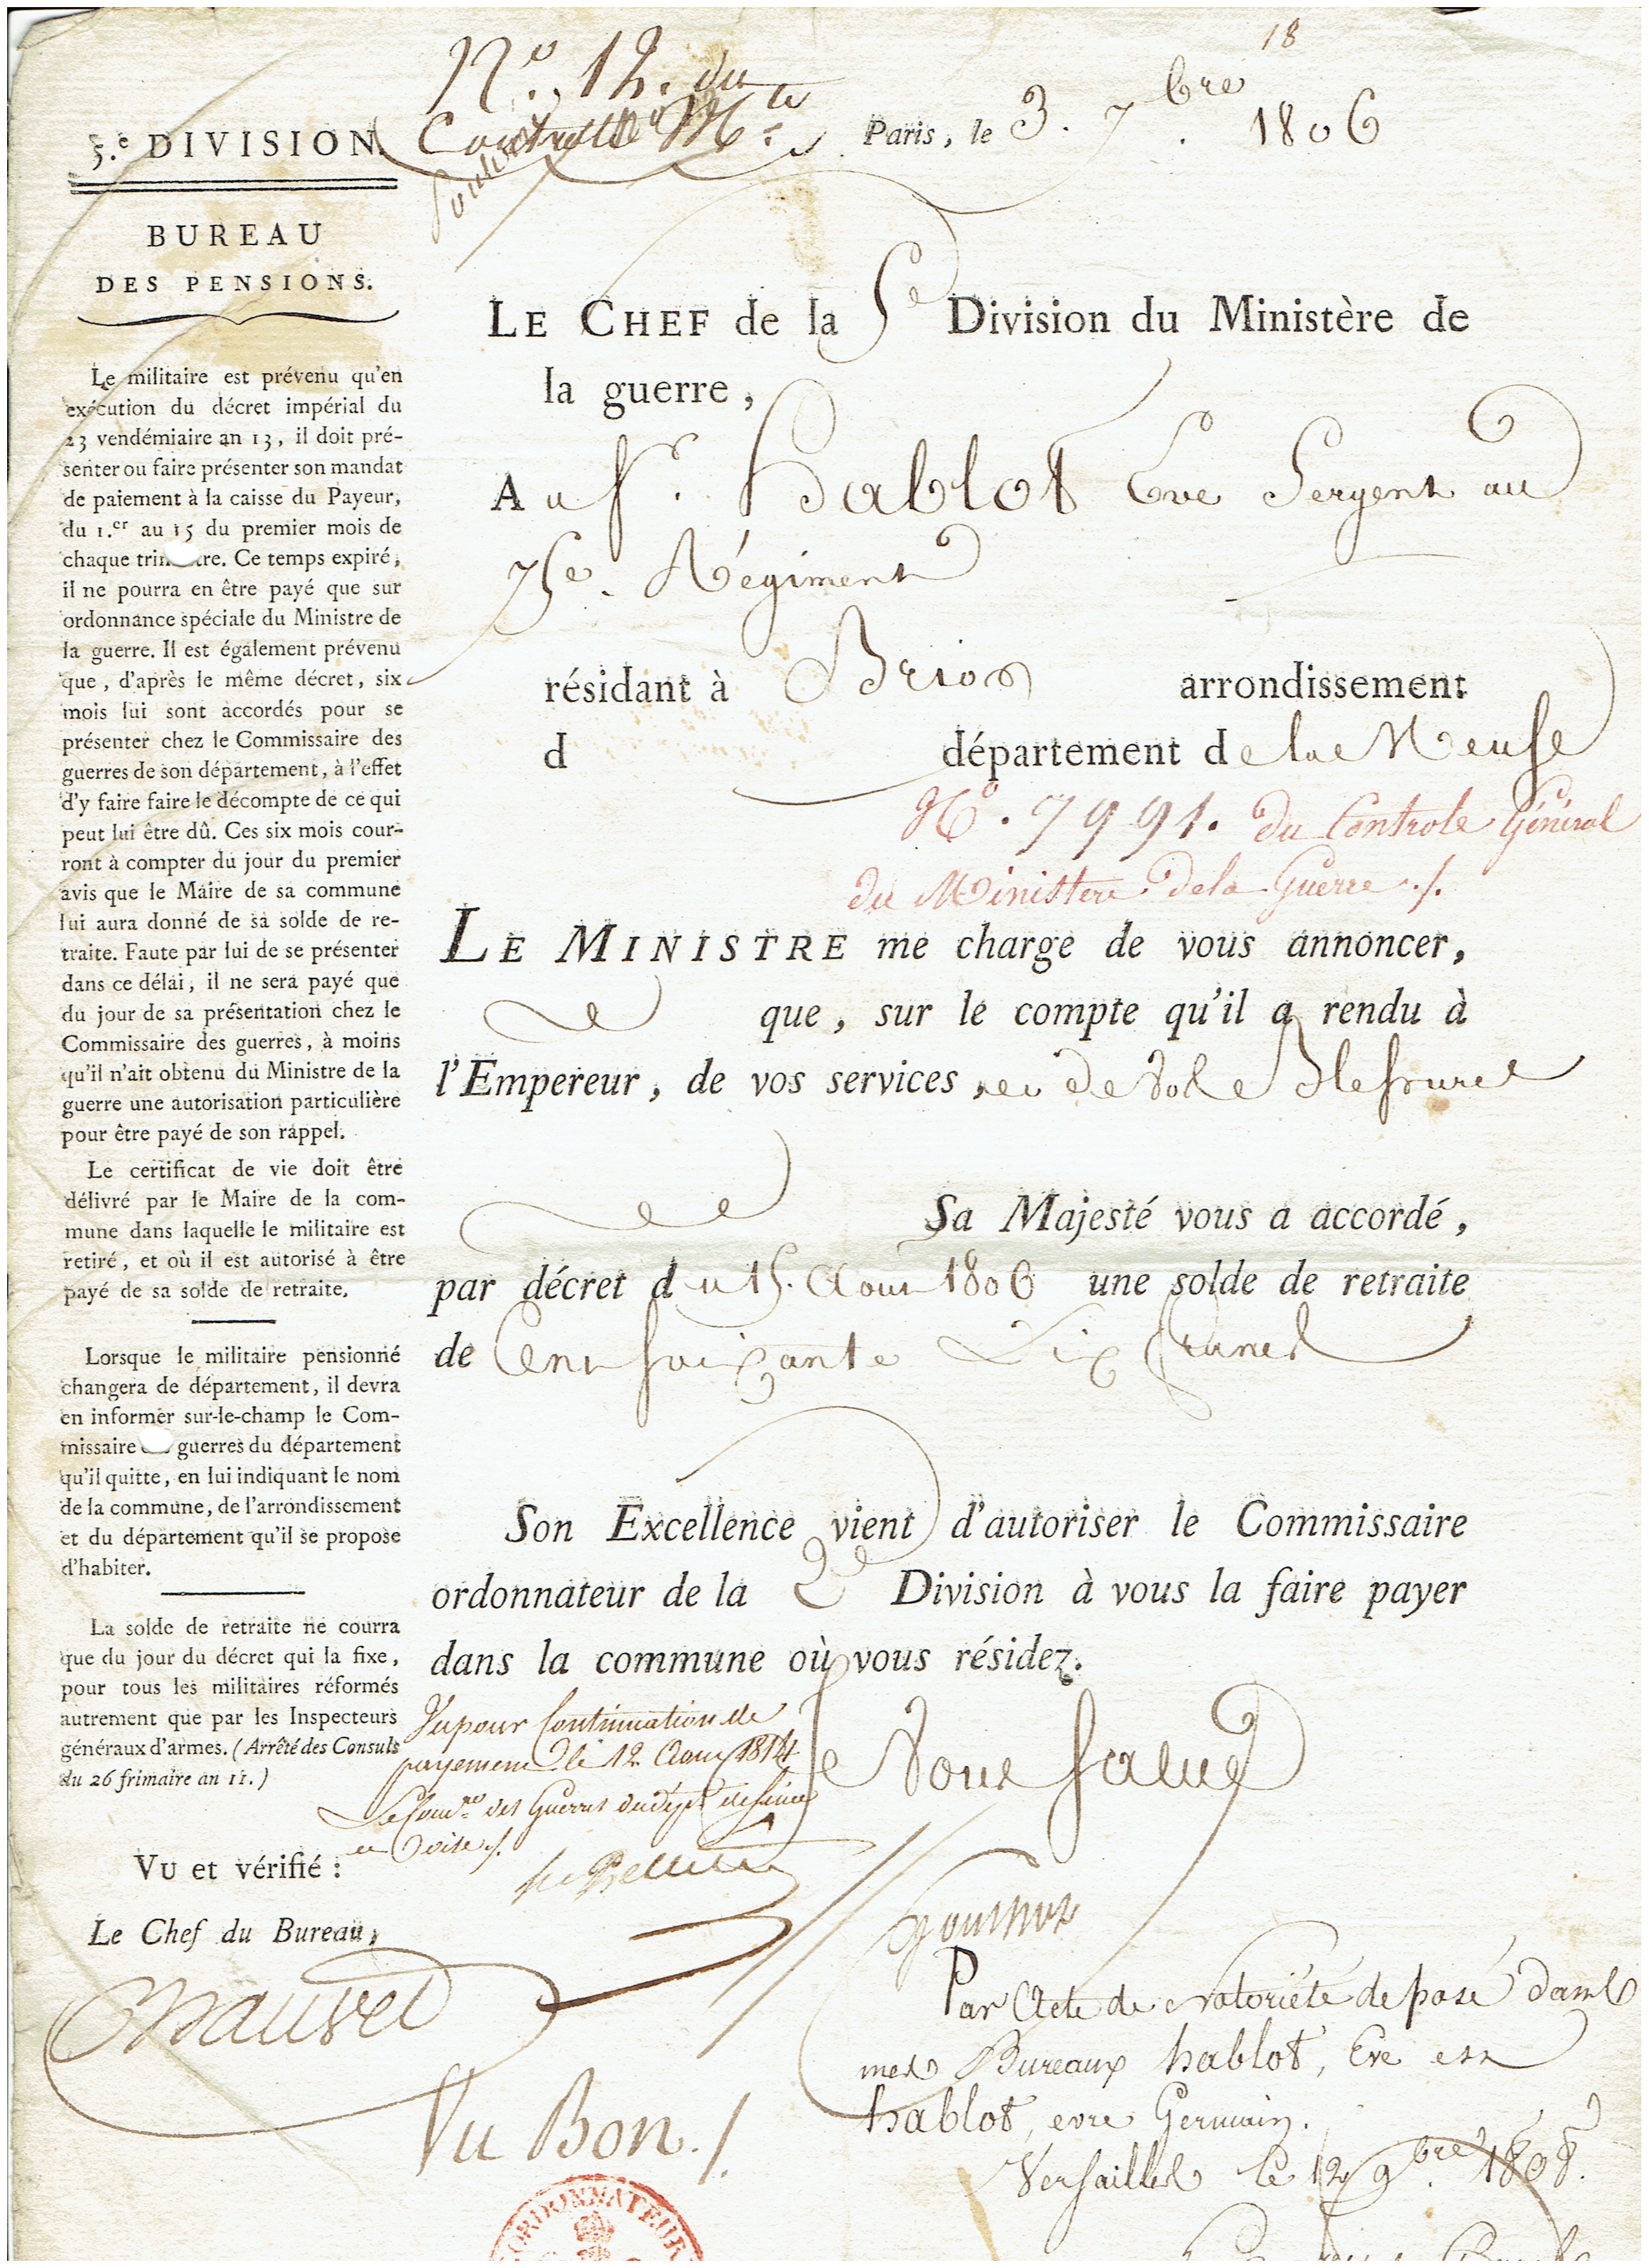 18
N.o 12. du
Contrôle M.re
Paris, le 3. 7bre. 1806
5.e DIVISION.
BUREAU
DES PENSIONS.
Le militaire est prévenu qu'en
exécution du décret impérial du
23 vendémiaire an 13, il doit pré-
senter ou faire présenter son mandat
de paiement à la caisse du Payeur,
du 1.er au 15 du premier mois de
chaque trim tre. Ce temps expiré,
il ne pourra en être payé que sur
ordonnance spéciale du Ministre de
la guerre. Il est également prévenu
que, d'après le même décret, six
mois lui sont accordés pour se
présenter chez le Commissaire des
guerres de son département, à l'effet
d'y faire faire le décompte de ce qui
peut lui être dû. Ces six mois cour-
ront à compter du jour du premier
avis que le Maire de sa commune
lui aura donné de sa solde de re-
traite. Faute par lui de se présenter
dans ce délai, il ne sera payé que
du jour de sa présentation chez le
Commissaire des guerres, à moins
qu'il n'ait obtenu du Ministre de la
guerre une autorisation particulière
pour être payé de son rappel.
Le certificat de vie doit être
délivré par le Maire de la com-
mune dans laquelle le militaire est
retiré, et où il est autorisé à être
payé de sa solde de retraite.
Lorsque le militaire pensionné
changera de département, il devra
en informer sur-le-champ le Com-
missaire guerres du département
qu'il quitte, en lui indiquant le nom
de la commune, de l'arrondissement
et du département qu'il se propose
d'habiter.
La solde de retraite ne courra
que du jour du décret qui la fixe,
pour tous les militaires réformés
autrement que par les Inspecteurs
généraux d'armes. (Arrêté des Consuls
du 26 frimaire an 11.)
Vu et vérifié :
Le Chef du Bureau,
Chauvet
LE CHEF de la 5e Division du Ministère de
la guerre,
Au Sr. hablot Eve Sergent au
75e. Régiment
résidant à Brion arrondissement
d département de la Meuse
No. 7991. du Controle Général
du Ministere de la Guerre ./.
LE MINISTRE me charge de vous annoncer,
que, sur le compte qu'il a rendu à
l'Empereur, de vos services, et de vos Blessures
Sa Majesté vous a accordé,
par décret du 15. Aout 1806 une solde de retraite
de Cent soixante Dix francs
Son Excellence vient d'autoriser le Commissaire
ordonnateur de la 2e Division à vous la faire payer
dans la commune où vous résidez.
Je vous salue
Vu pour Continuation de
payement le 12 Aout 1814
Le Comre des Guerres du dépt de Seine
et Oise ./.
Par Acte de Notoriété deposé dans
mes Bureaux hablot, Eve est
hablot, evre Germain.
Versailles le 12 9bre 1808.
Vu Bon ./.
ORDONNATEUR